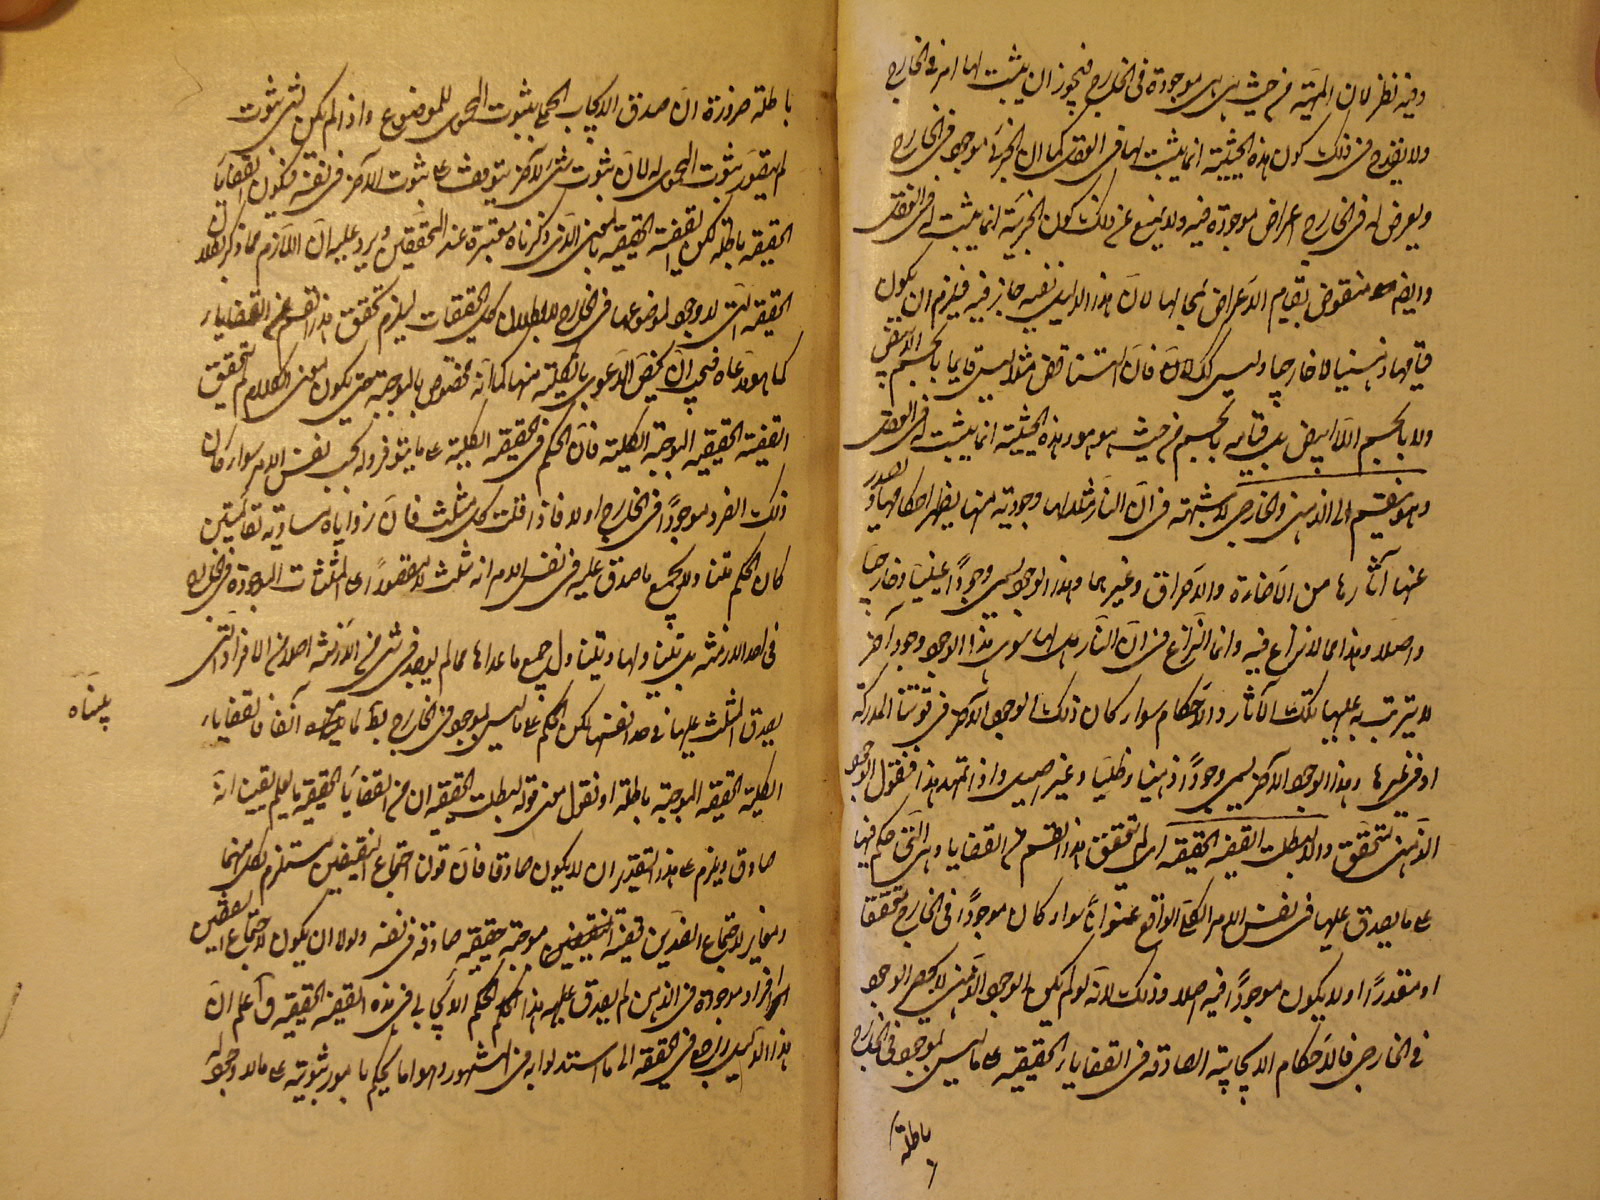 وفيه نظر لان المهية من حيث هى هى موجودة فى الخارج فيجوز ان يثبت لها امر فى الخارج
ولا يقدح فى ذلك كون هذه الحيثية انما يثبت لها فى العقل كما ان الجزئى موجود فى الخارج
ويعرض له فى الخارج اعراض موجودة فيه ولا يمنع عن ذلك كون الجزئية انما يثبت له فى العقل
وايضه منقوض بقيام الاعراض بمحالها لان هذا الدليل بعينه جاز فيه فيلزم ان يكون
قيامها ذهنيا لا خارجيا وليس كك لان فان البياض مثلا ليس قايما بالجسم الابيض
ولا بالجسم اللاابيض بل قيامه بالجسم من حيث هو هو وهذه الحيثية انما يثبت له فى العقل
وهو ينقسم الى الذهنى والخارجى لا شبهة فى ان النار مثلا لها وجود به منها يظهر احكامها ويصدر
عنها آثارها من الاضاءة والاحراق وغيرهما وهذا الوجود يسمى وجودًا عينيا وخارجيا
واصيلا وهذا مما لا نزاع فيه وانما النزاع فى ان النار هل لها سوى هذا الوجود وجود آخر
لا يترتب به عليها تلك الآثار والاحكام سواء كان ذلك الوجود الآخر فى قوتنا المدركة
او فى غيرها وهذا الوجود الآخر يسمى وجودًا ذهنيا وظليا وغير اصيل واذا تمهد هذا فنقول الوجود
الذهنى متحقق والا لبطلت القضية الحقيقه اى لم تتحقق هذا القسم من القضايا وهى التى حكم فيها
على ما يصدق عليها فى نفس الامر الكلى الواقع عنوانًا سواء كان موجودًا فى الخارج محققا
او مقدرًا او لا يكون موجودًا فيه اصلا وذلك لانه لو لم يكن الوجود الذهنى لانحصر الوجود
فى الخارجى فالاحكام الايجابية الصادقة فى القضايا الحقيقيه على ما ليس بموجود فى الخارج
باطلة
باطلة ضرورة ان صدق الايجاب الحكم بثبوت المحمول للموضوع واذا لم يكن لشى ثبوت
لم يتصور ثبوت المحمول له لان ثبوت شى لآخر يتوقف على ثبوت الآخر فى نفسه فيكون القضايا
الحقيقه باطله لكن القضية الحقيقه بالمعنى الذى ذكرناه معتبرة عند المحققين ويرد عليه ان اللازم مما ذكر بطلان
الحقيقه التى لا وجود لموضوعها فى الخارج لا بطلان كل الحقيقات ليلزم تحقق هذا القسم من القضايا
كما هو مدعاه فيجب ان يخص الدعوى بالكلية منها كما انه مخصوص بالموجبة حتى يكون معنى الكلام لم يتحقق
القضية الحقيقيه الموجبة الكلية فان الحكم فى الحقيقه الكلية على ما يتوفر له بحسب نفس الامر سواء كان
ذلك الفرد موجودًا فى الخارج او لا فاذا قلت كل مثلث فان زواياه مساوية لقائمتين
كان الحكم متناولا لجميع ما صدق عليه فى نفس الامر انه مثلث لا مقصورًا على المثلثات الموجودة فى الخارج
فى احد الازمنة بل يتناولها ويتناول جميع ما عداها مما لم يوجد فى شى من الازمنة اصلا من الافراد التى
يصدق المثلث عليها فى حد انفسها لكن الحكم على ما ليس بموجود فى الخارج بط لما بيناه آنفا فالقضايا
بيناه
الكلية الحقيقه الموجبة باطلة او نقول معنى قوله لبطلت الحقيقه ان من القضايا الحقيقيه ما يعلم يقينا انه
صادق ويلزم على هذا التقدير ان لا يكون صادقا فان قولنا اجتماع النقيضين مستلزم لكل منهما
ومغاير لاجتماع الضدين قضية موجبة حقيقيه صادقة فى نفسه ولولا ان يكون لاجتماع النقيضين
افراد موجودة فى الذهن لم يصدق عليه هذا الحكم الايجابى فى هذه القضية الحقيقيه واعلم ان
هذا الدليل راجع فى الحقيقه الى ما استدلوا به فى المشهور وهو انا نحكم بامور ثبوتية على ما لا وجود له